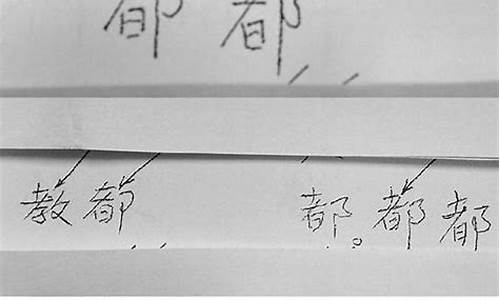 都 都
教 都 都 都 都